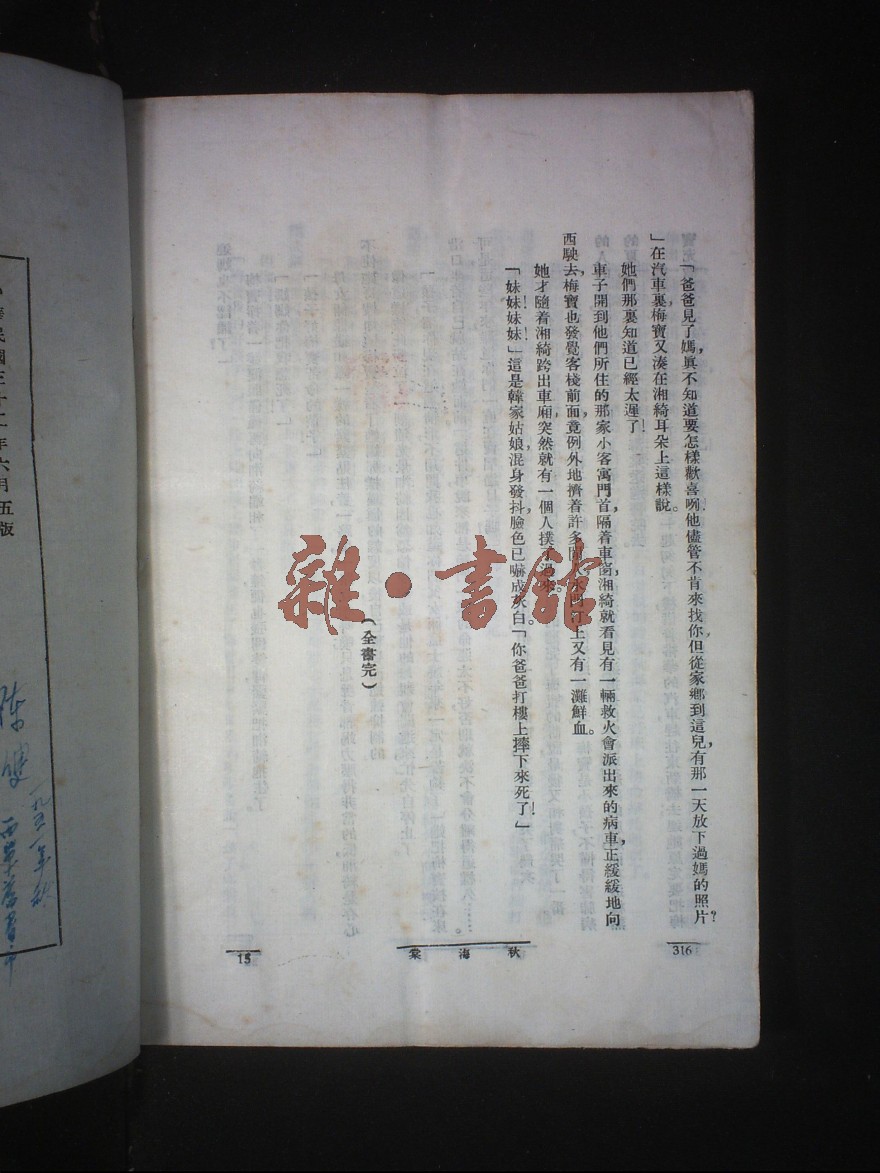 「爸爸見了媽，眞不知道要怎樣歡喜咧！他儘管不肯來找你，但從家鄉到這兒，有那一天放下過媽的照片？
」在汽車裏梅寶又湊在湘綺耳朵上這樣說。
她們那裏知道已經太遲了！
車子開到他們所住的那家小客寓門首，隔着車窗，湘綺就看見有一輛救火會派出來的病車，正緩緩地向
西駛去，梅寶也發覺客棧前面，竟例外地擠着許多閒人，水門汀上又有一灘鮮血。
她才隨着湘綺跨出車廂，突然就有一個人撲了過來。
「妹妹！妹妹！」這是韓家姑娘，混身發抖，臉色已嚇成灰白。「你爸爸打樓上摔下來死了！」
（全書完）
316
秋海棠
15
雜·書館
民國三十二年六月五版